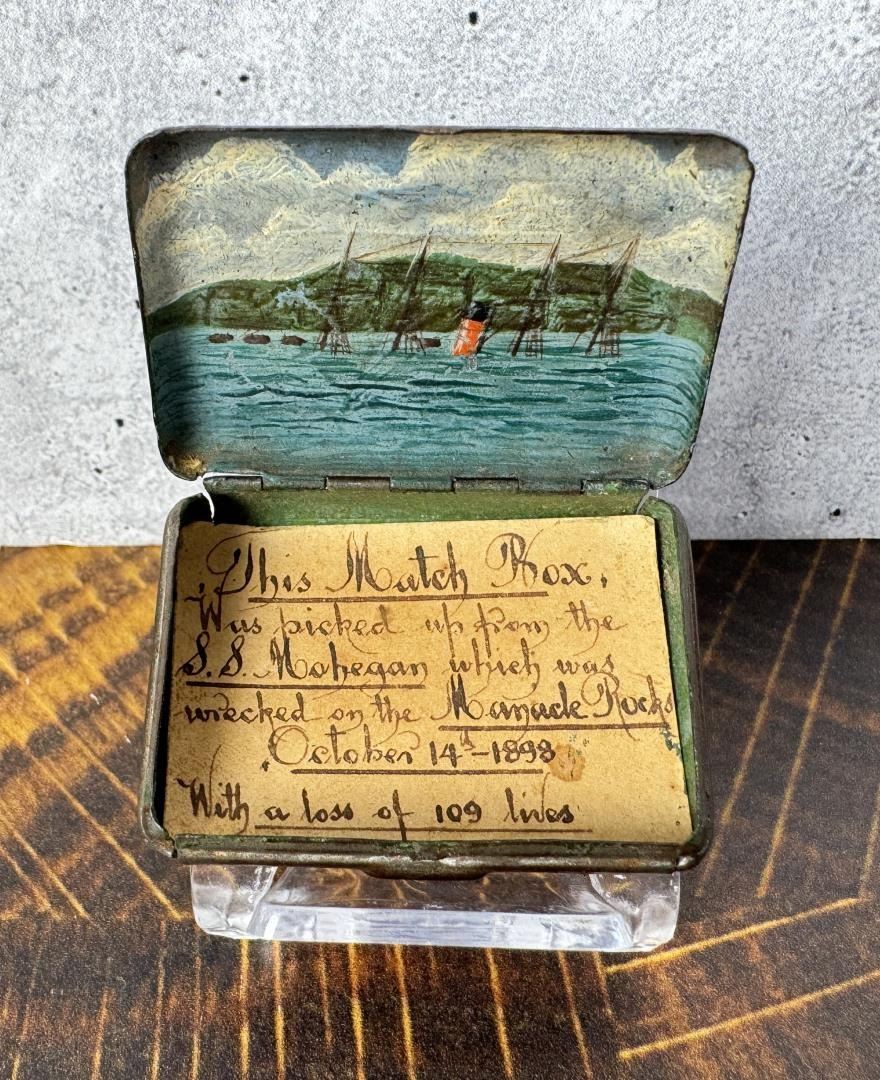 This Match Box.
Was picked up from the
S.S. Mohegan which was
wrecked on the Manacle Rocks
October 14th-1898
With a loss of 109 lives